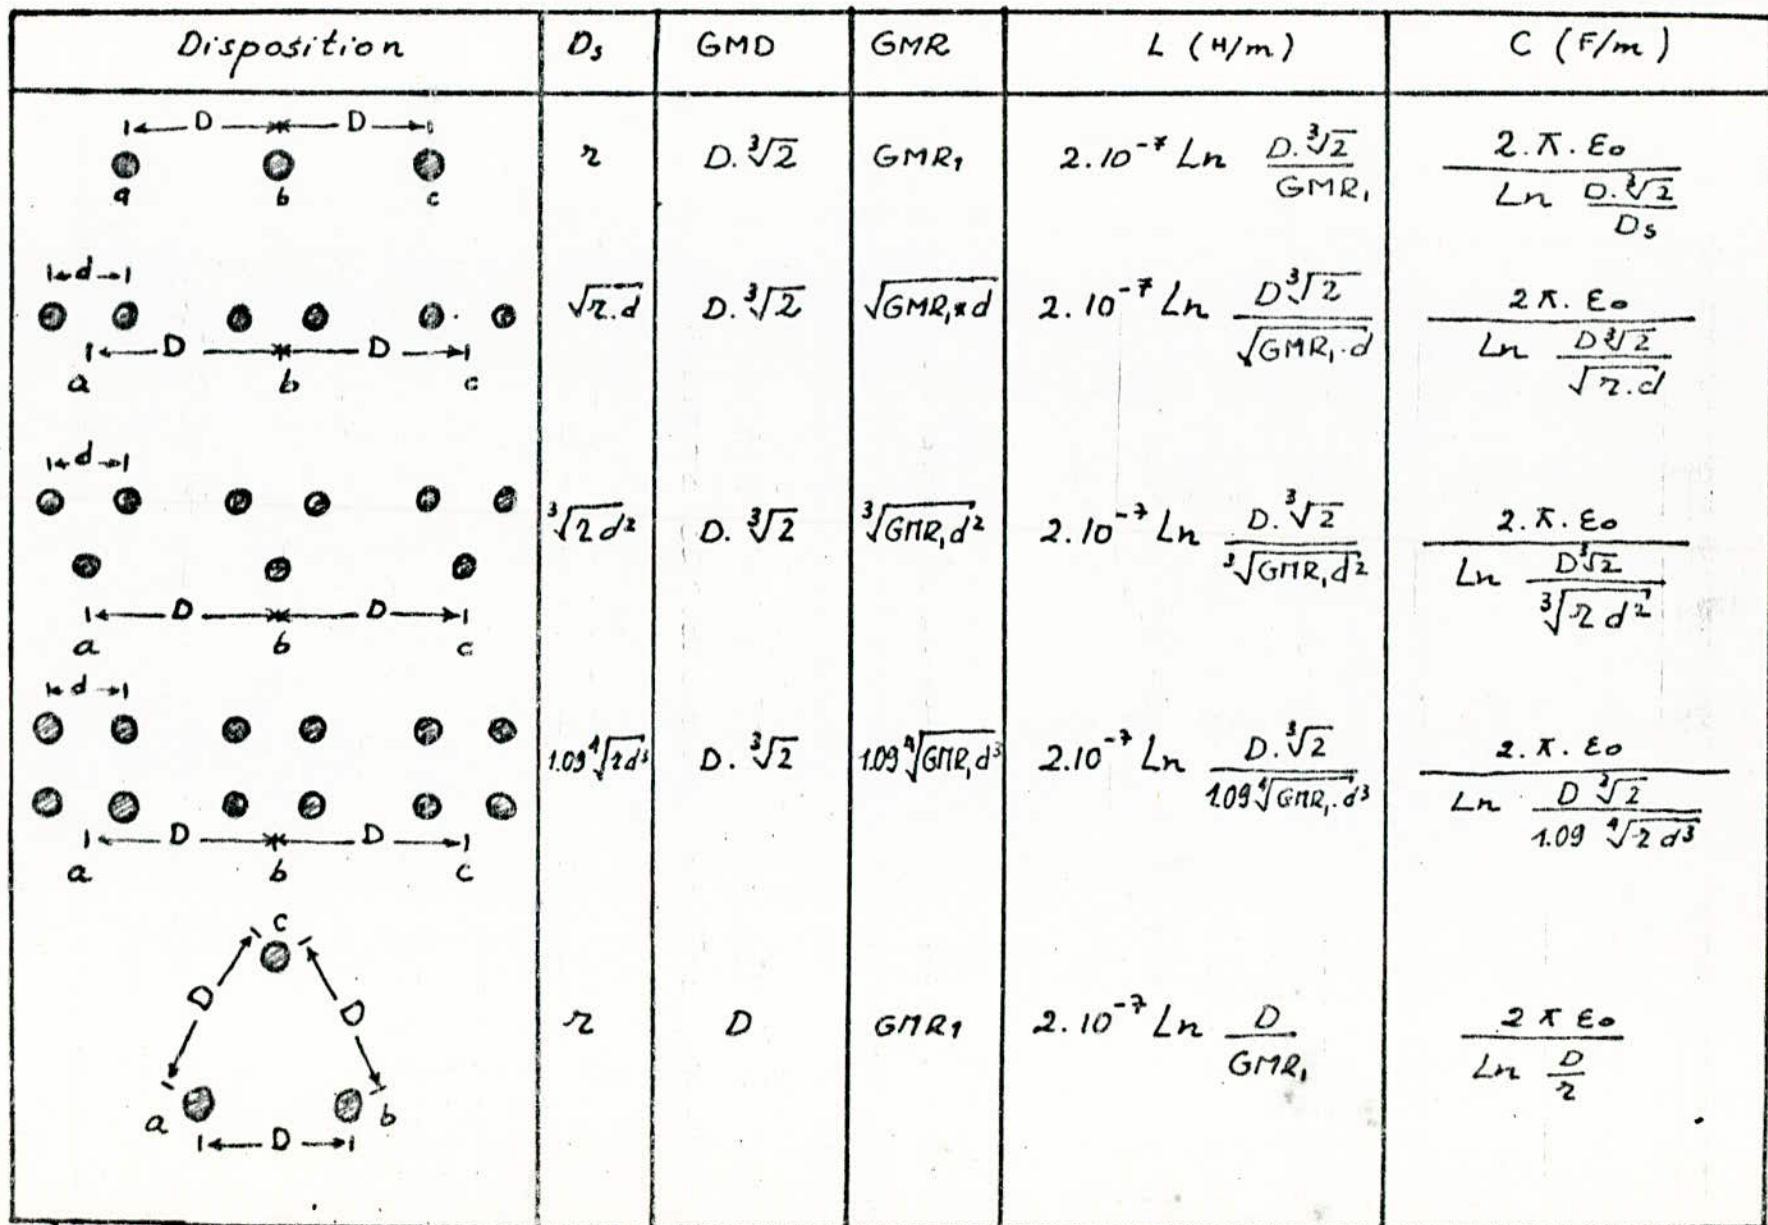 Disposition | Ds | GMD | GMR | L (H/m) | C (F/m)
D D
a b c
r | D.∛2 | GMR₁ | 2.10⁻⁷ Ln (D.∛2 / GMR₁) | 2.π.ε₀ / (Ln (D.∛2 / Ds))
d
D D
a b c
√(r.d) | D.∛2 | √(GMR₁*d) | 2.10⁻⁷ Ln (D∛2 / √(GMR₁.d)) | 2π.ε₀ / (Ln (D∛2 / √(r.d)))
d
D D
a b c
∛(r d²) | D.∛2 | ∛(GMR₁d²) | 2.10⁻⁷ Ln (D.∛2 / ∛(GMR₁d²)) | 2.π.ε₀ / (Ln (D∛2 / ∛(r d²)))
d
D D
a b c
1.09 ∜(r d³) | D.∛2 | 1.09 ∜(GMR₁d³) | 2.10⁻⁷ Ln (D.∛2 / 1.09 ∜(GMR₁.d³)) | 2.π.ε₀ / (Ln (D ∛2 / 1.09 ∜(r d³)))
c
D D
a b
D
r | D | GMR₁ | 2.10⁻⁷ Ln (D / GMR₁) | 2 π ε₀ / (Ln (D / r))